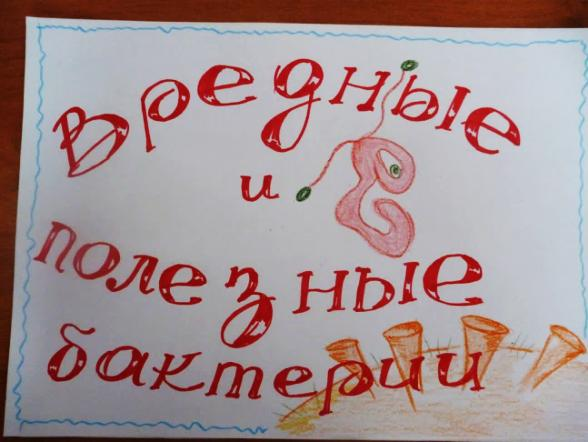 Вредные
и
полезные
бактерии